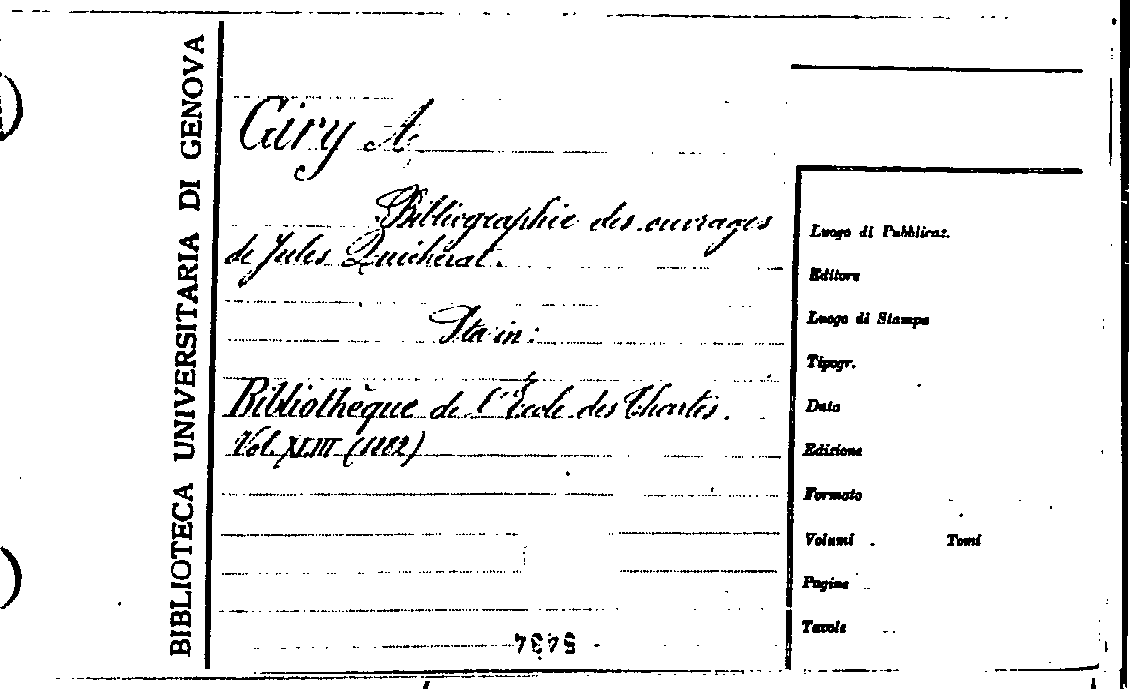 BIBLIOTECA UNIVERSITARIA DI GENOVA
Giry A.
Bibliographie des ouvrages
de Jules Quicherat.
Sta in:
Bibliothèque de l'École des Chartes.
Vol. XLIII (1882)
5434
Luogo di Pubblicaz.
Editore
Luogo di Stampa
Tipogr.
Data
Edizione
Formato
Volumi Tomi
Pagine
Tavole